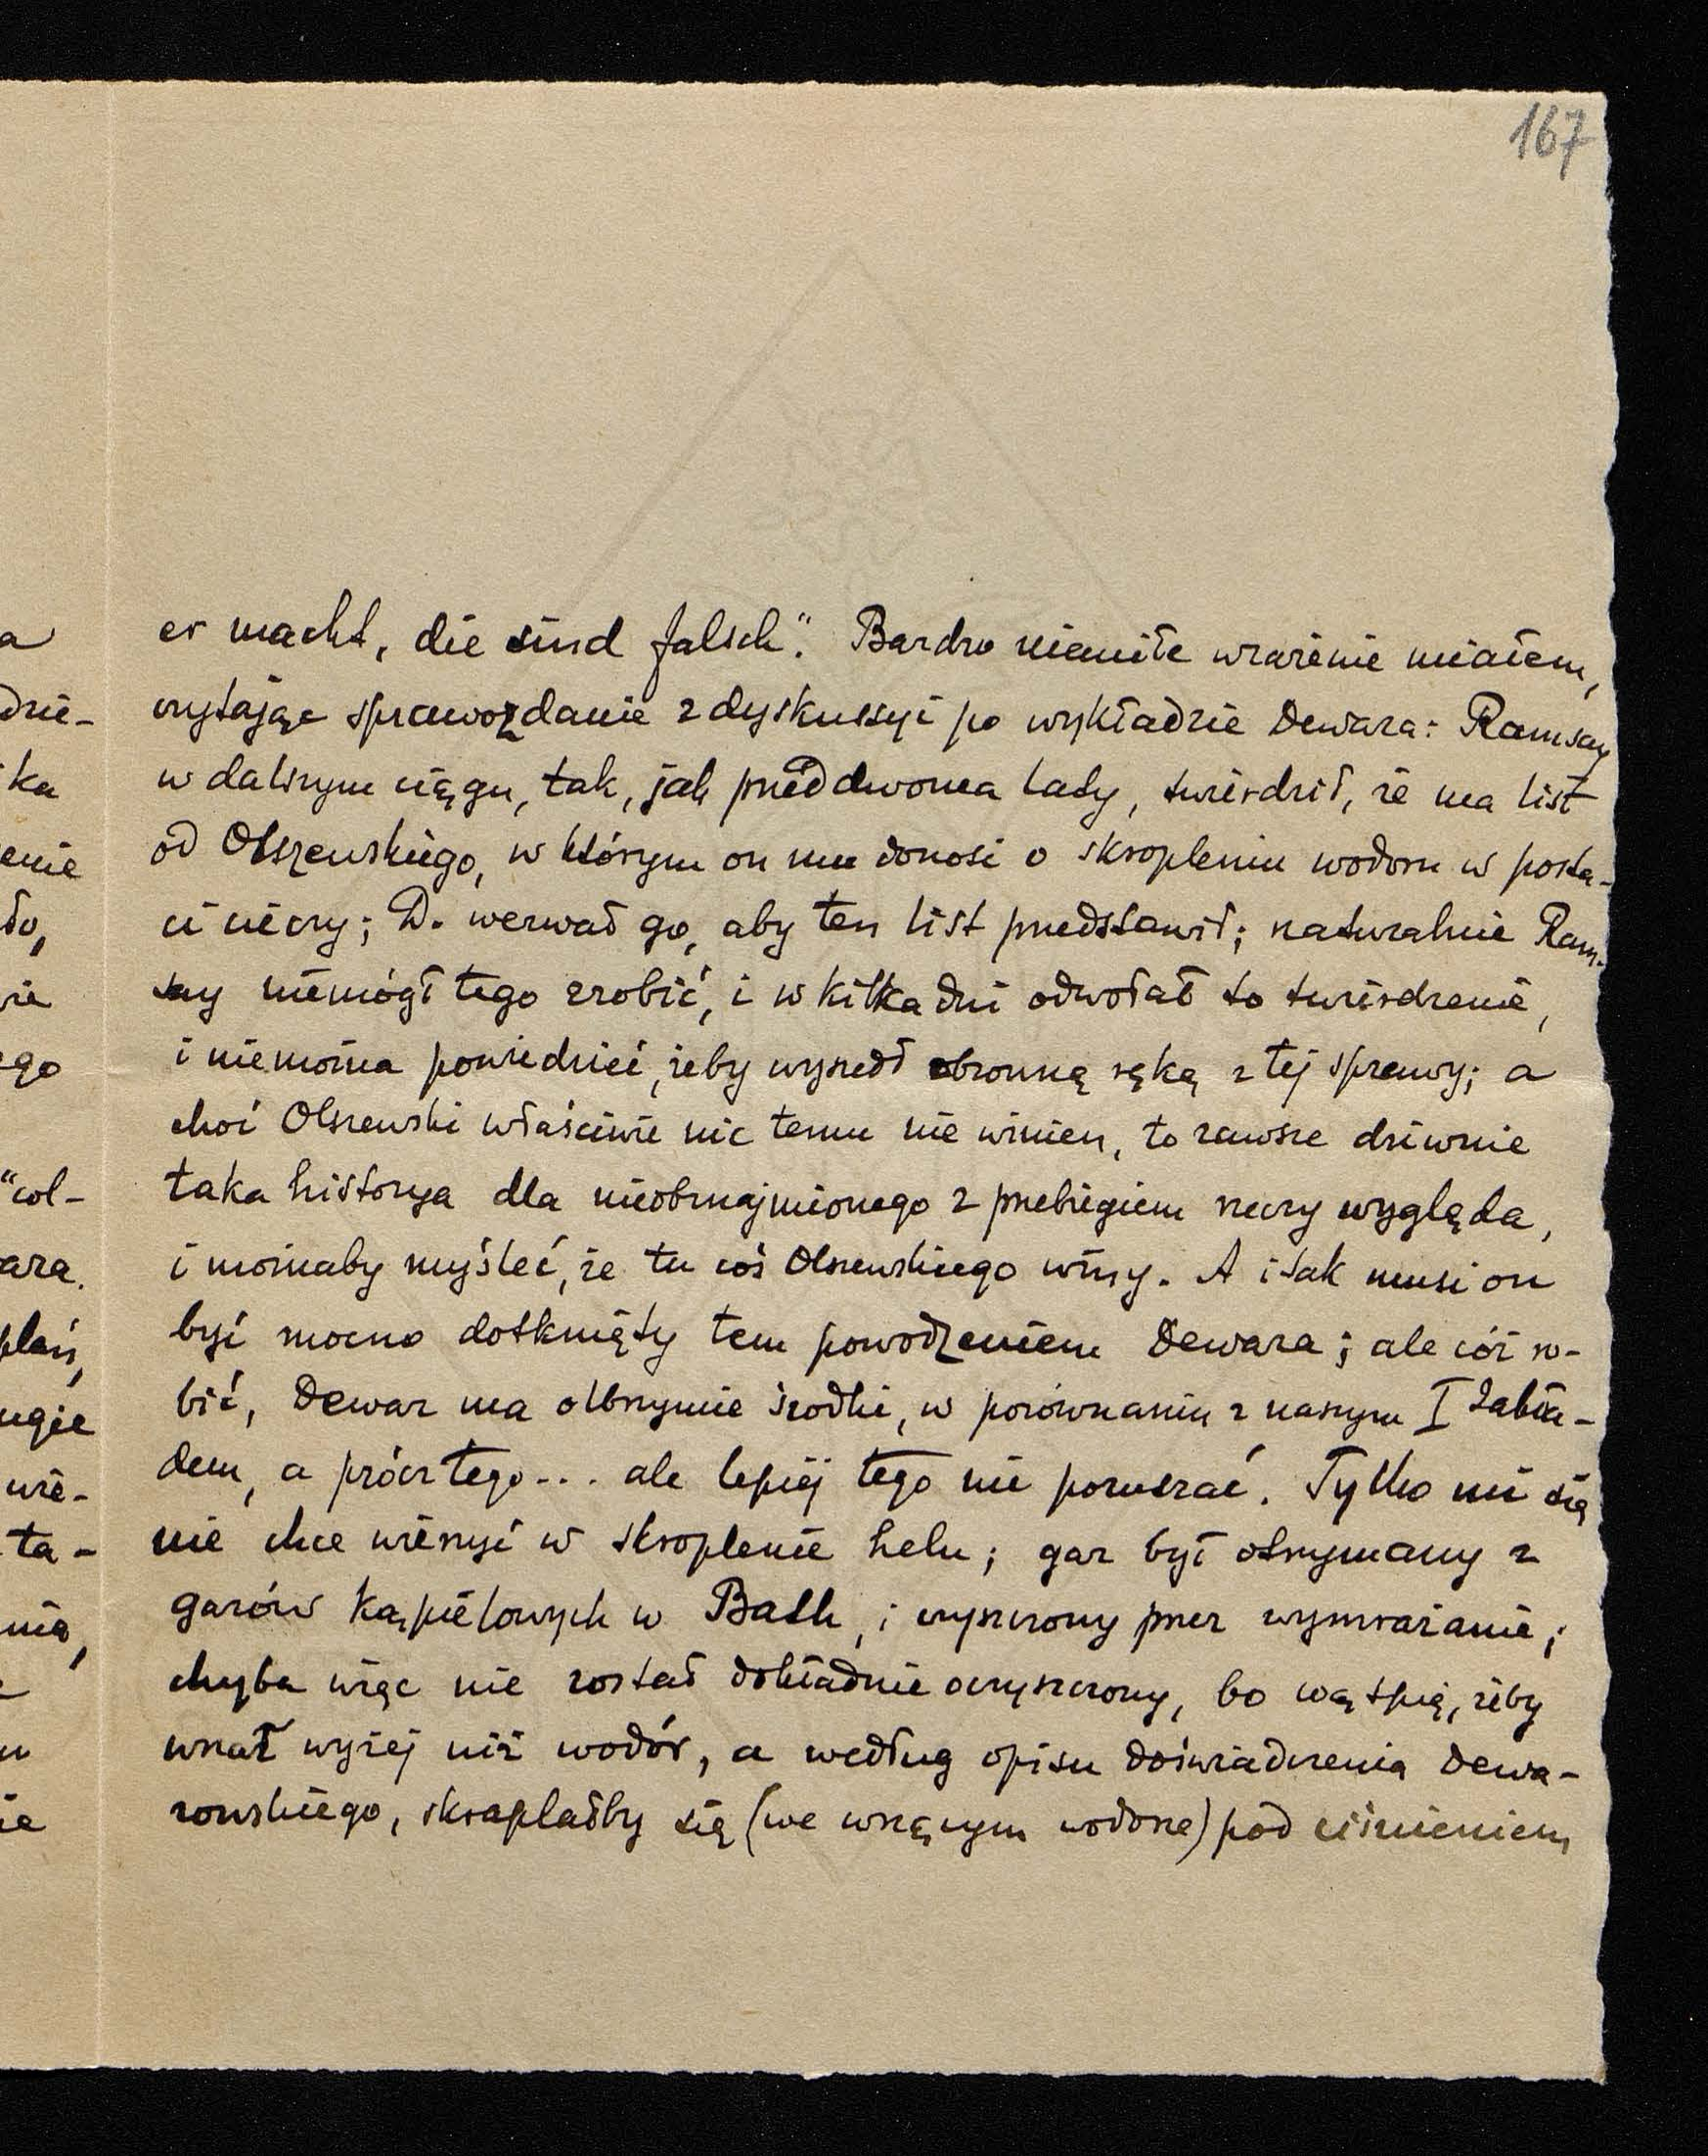 167
er macht, die sind falsch“. Bardzo niemiłe wrażenie miałem,
czytając sprawozdanie z dyskussyi po wykładzie Dewara: Ramsay
w dalszym ciągu, tak, jak przed dwoma laty, twierdził, że ma list
od Olszewskiego, w którym on mu donosi o skropleniu wodoru w posta-
ci cieczy; D. wezwał go, aby ten list przedstawił; naturalnie Ram-
say niemógł tego zrobić, i w kilka dni odwołał to twierdzenie,
i niemożna powiedzieć, żeby wyszedł obronną ręką z tej sprawy; a
choć Olszewski właściwie nic temu nie winien, to zawsze dziwnie
taka historya dla nieobznajmionego z przebiegiem rzeczy wygląda,
i możnaby myśleć, że tu coś Olszewskiego winy. A i tak musi on
być mocno dotknięty tem powodzeniem Dewara; ale cóż ro-
bić, Dewar ma olbrzymie środki, w porównaniu z naszym I Zakła-
dem, a prócz tego... ale lepiej tego nie poruszać. Tylko mi się
nie chce wierzyć w skroplenie helu; gaz był otrzymany z
gazów kąpielowych w Bath, i czyszczony przez wymrażanie;
chyba więc nie został dokładnie oczyszczony, bo wątpię, żeby
wrzał wyżej niż wodór, a według opisu doświadczenia Dewa-
rowskiego, skraplałby się (we wrzącym wodorze) pod ciśnieniem
a
dzie-
ka
enie
to,
nie
ego
“col-
ara.
ugie
wie-
ta-
nia,
u
ie